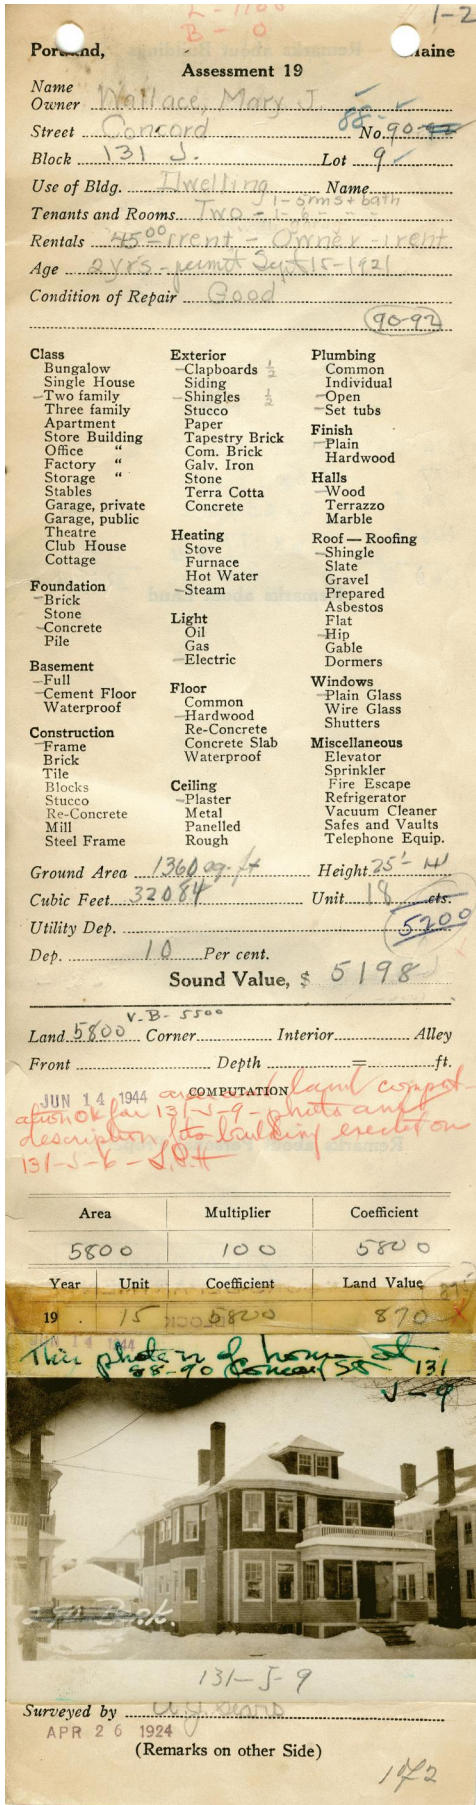 L - 1100
B - 0
1-2
Portland, Maine
Assessment 19
Name
Owner Wallace, Mary J.
88-
Street Concord No. 90-92
Block 131 J. Lot 9
Use of Bldg. Dwelling Name
1-5rms + bath
Tenants and Rooms Two - 1-6 - " - "
Rentals 45 00 rent - Owner - rent
Age 2 yrs - permit Sept 15-1921
Condition of Repair Good
90-92
Class
Bungalow
Single House
Two family
Three family
Apartment
Store Building
Office "
Factory "
Storage "
Stables
Garage, private
Garage, public
Theatre
Club House
Cottage
Foundation
Brick
Stone
Concrete
Pile
Basement
Full
Cement Floor
Waterproof
Construction
Frame
Brick
Tile
Blocks
Stucco
Re-Concrete
Mill
Steel Frame
Exterior
Clapboards ½
Siding
Shingles ½
Stucco
Paper
Tapestry Brick
Com. Brick
Galv. Iron
Stone
Terra Cotta
Concrete
Heating
Stove
Furnace
Hot Water
Steam
Light
Oil
Gas
Electric
Floor
Common
Hardwood
Re-Concrete
Concrete Slab
Waterproof
Ceiling
Plaster
Metal
Panelled
Rough
Plumbing
Common
Individual
Open
Set tubs
Finish
Plain
Hardwood
Halls
Wood
Terrazzo
Marble
Roof — Roofing
Shingle
Slate
Gravel
Prepared
Asbestos
Flat
Hip
Gable
Dormers
Windows
Plain Glass
Wire Glass
Shutters
Miscellaneous
Elevator
Sprinkler
Fire Escape
Refrigerator
Vacuum Cleaner
Safes and Vaults
Telephone Equip.
Ground Area 1360 sq. ft Height 25'-
Cubic Feet 32084 Unit 18 cts.
Utility Dep. 5200
Dep. 10 Per cent.
Sound Value, $ 5198
V. B- 5500
Land 5800 Corner Interior Alley
Front Depth = ft.
COMPUTATION
JUN 14 1944 area and land comput-
ation OK for 131-J-9 - photo and
description for building erected on
131-J-6 -
Area Multiplier Coefficient
5800 100 5800
Year Unit Coefficient Land Value
19 15 5800 870
JUN 14 1944
This photo is of home at
88-90 Concord St 131
J-9
131-J-9
Surveyed by
APR 26 1924
(Remarks on other Side)